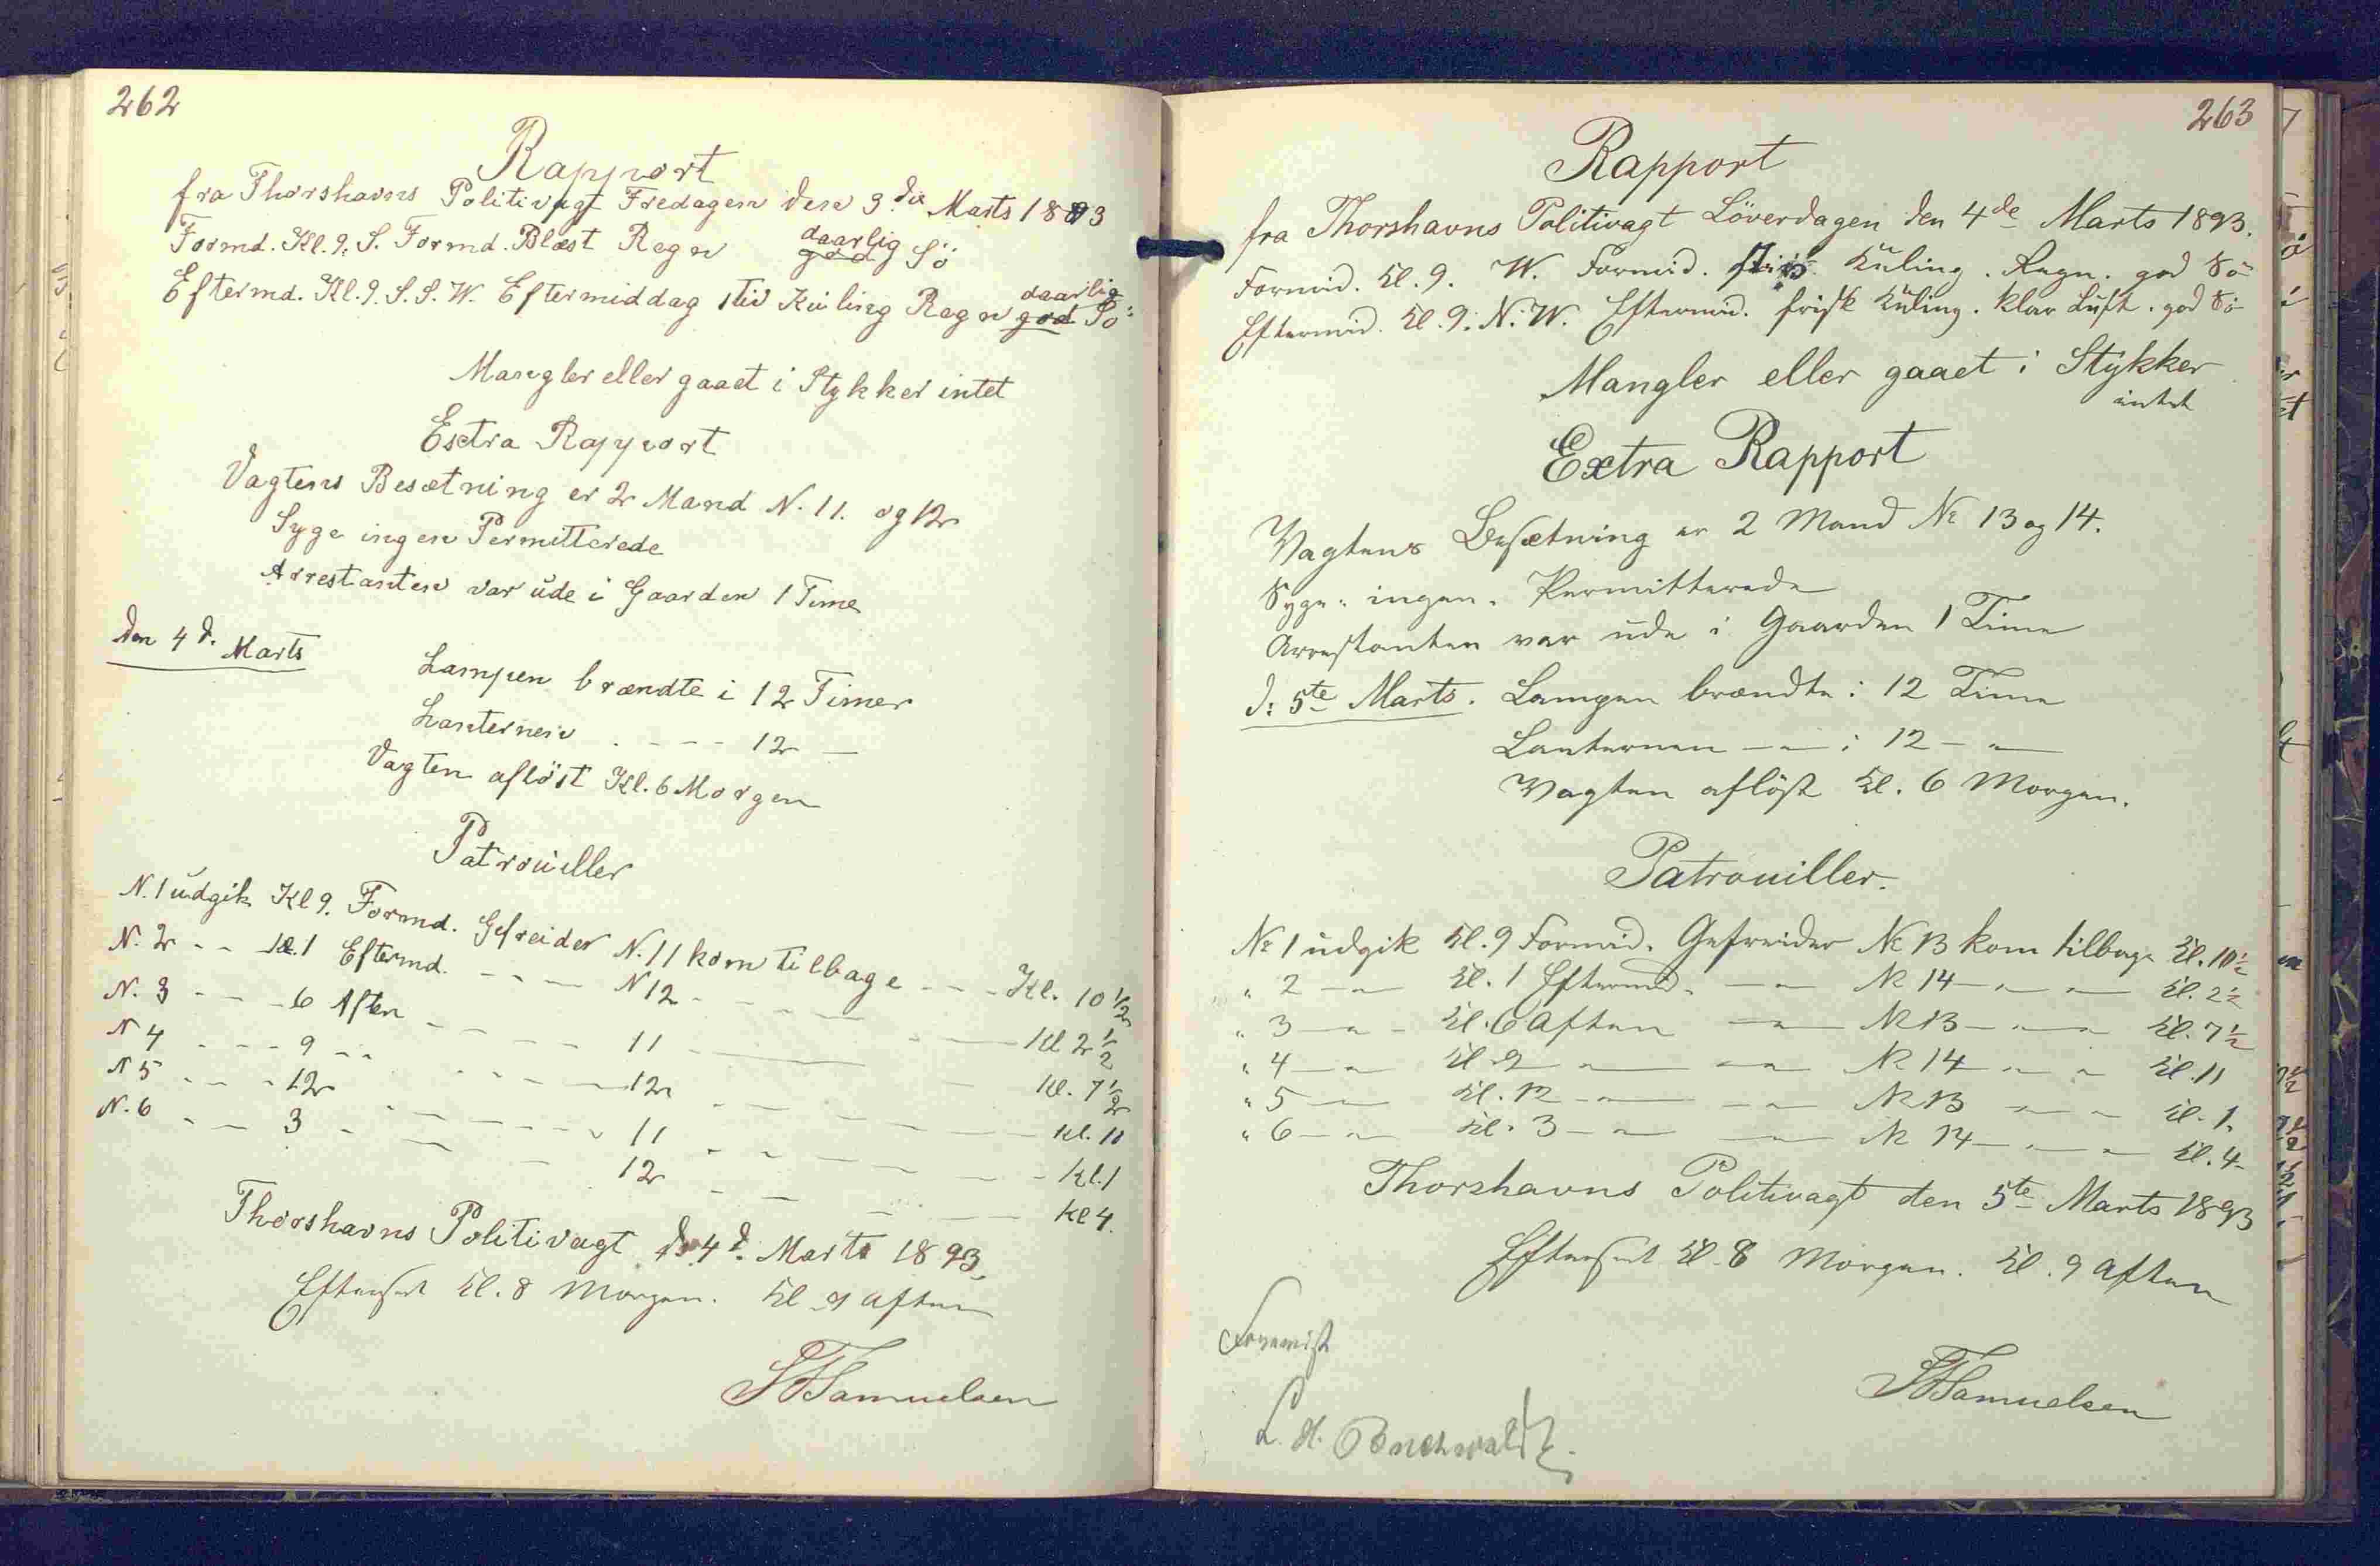 262
Rapport
fra Thorshavns Politivagt Fredagen den 3die Marts 1893
Formd. Kl. 9. S. Formd. Blæst Regn god daarlig Sö
Eftermd. Kl. 9. S. S. W. Eftermiddag stiv Kuling Regn god daarlig Sö
Mangler eller gaaet i Stykker intet
Extra Rapport
Vagtens Besætning er 2 Mand N. 11. og 12
Syge ingen Permitterede
Arrestanten var ude i Gaarden 1 Time
den 4d. Marts
Lampen brændte i 12 Timer
Lanternen - - - - 12 —
Vagten aflöst Kl. 6 Morgen
Patrouiller
N. 1 udgik Kl 9. Formd. Gefreider N. 11 kom tilbage - - - Kl. 10 1/2
N. 2 - - Kl. 1 Eftermd. - - - N 12 - - - Kl 2 1/2
N. 3 - - - 6 Aften - - - 11 - - - Kl. 7 1/2
N 4 - - - 9 - - - - - 12 - - - Kl. 11
N 5 - - - 12 - - - - 11 - - - Kl. 1
N. 6 - - - 3 - - - - 12 - - - Kl 4.
Thorshavns Politivagt d. 4d. Marts 1893.
Efterset Kl. 8 Morgen. Kl 9 Aften
Samuelsen
263
Rapport
fra Thorshavns Politivagt Löverdagen den 4de Marts 1893.
Formid. Kl. 9. W. Formid. stiv Kuling. Regn. god Sö
Eftermid. Kl. 9. N. W. Eftermid. frisk Kuling. klar Luft. god Sö
Mangler eller gaaet i Stykker
intet
Extra Rapport
Vagtens Besætning er 2 Mand No 13 og 14.
Syge: ingen. Permitterede
Arrestanten var ude i Gaarden 1 Time
d: 5te Marts. Lampen brændte i 12 Time
Lanternen — " — i 12 — " —
Vagten aflöst Kl. 6 Morgen.
Patrouiller.
No 1 udgik Kl. 9 Formid. Gefreider No 13 kom tilbage Kl. 10 1/2
" 2 — " — Kl. 1 Eftermid. — " — No 14 — " — " — Kl. 2 1/2
" 3 — " — Kl. 6 Aften — " — No 13 — " — " — Kl. 7 1/2
" 4 — " — Kl 9 — " — — " — No 14 — " — " — Kl. 11
" 5 — " — Kl. 12 — " — — " — No 13 — " — " — Kl. 1.
" 6 — " — Kl. 3 — " — — " — No 14 — " — " — Kl. 4
Thorshavns Politivagt den 5te Marts 1893
Efterset Kl. 8 Morgen. Kl. 9 Aften
Forevist
Samuelsen
L. H. Buchwaldt.